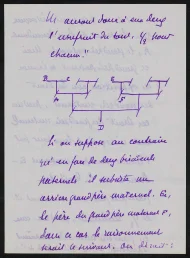 Ils auront donc à eux deux
l'usufruit de tout, 1/8 pour
chacun."
B C E
A F
D
Si on suppose au contraire
qu'en face de deux bisaïeuls
paternels il subsiste un
arrière grand père maternel G,
le père du grand père maternel F,
dans ce cas le raisonnement
serait le suivant. On dirait :